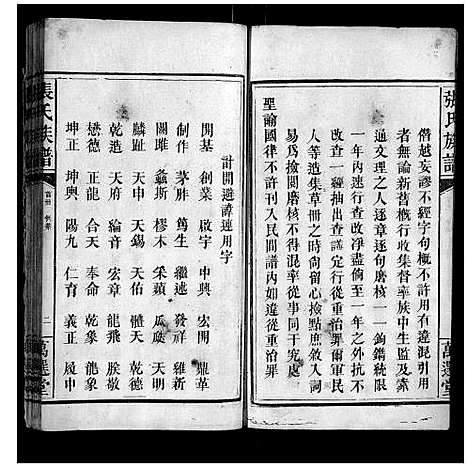 張氏族譜
僭越妄謬不經字句概不許用有違混引用
者無論新舊概行收集督率族中生監及
通文理之人逐章逐句磨核一一鈎鐫統限
一年內查改淨盡倘至一年之外抗不
改查一經抽出查議定行從重治罪爾軍民
人等造集草冊之時尚留心檢點庶敘入詞
易爲撿閱磨核不得草率了事致干同干究處
聖諭國律不許刊入民間譜內如違從重治罪
計開避諱連用字
開基 創業 啟宇 中興 宏開 鼎革
制作 茅胙 篤生 繼述 發祥 維新
關雎 螽斯 樛木 采蘋 瓜瓞 天明
麟趾 天申 天錫 天佑 體天 乘乾
乾造 天府 綸音 宏章 龍飛 朕敬
懋德 正龍 合天 乾乾 乾象 龍象
坤正 坤興 陽九 仁育 義正 履中
張氏族譜
首冊 例禁
二
萬選堂
萬選堂